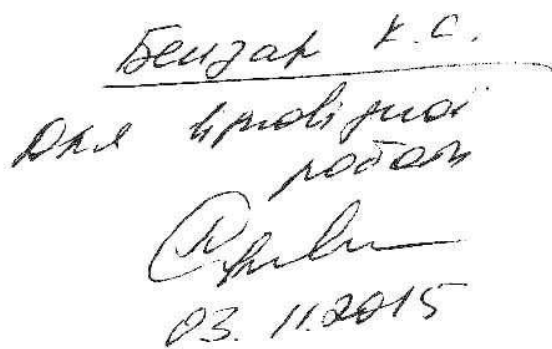 Бензар К.С.
Для відповідної
роботи
03.11.2015